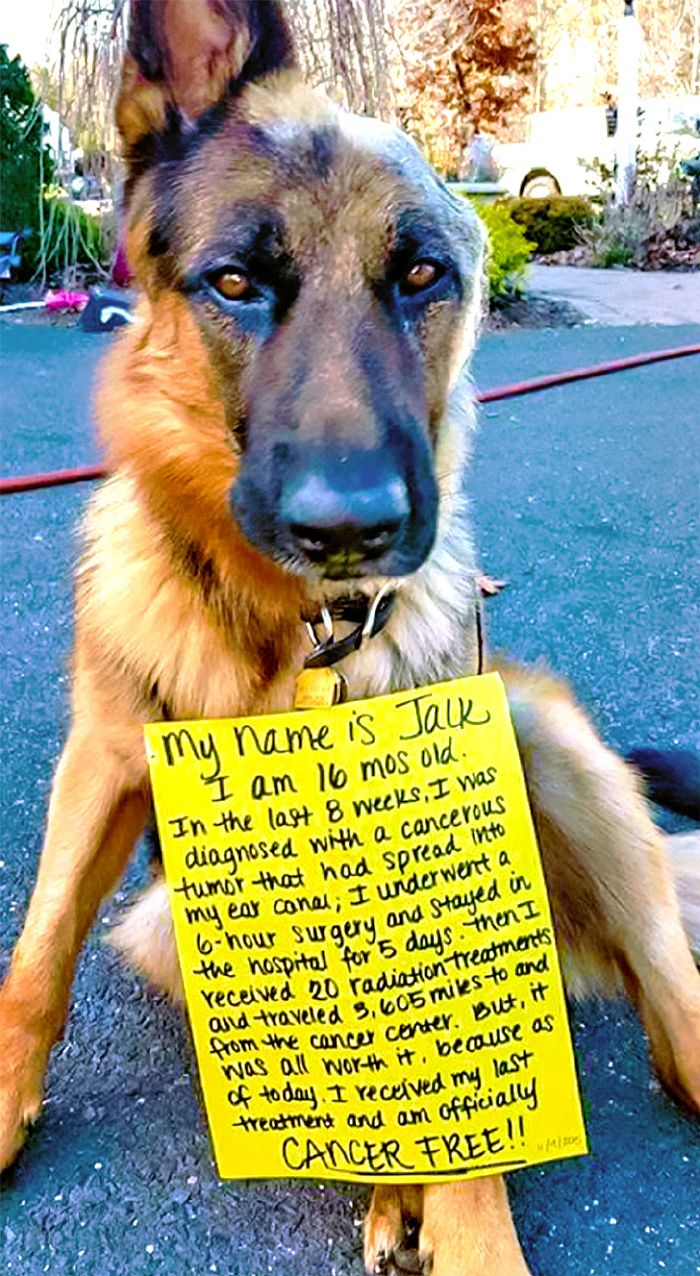 My name is Jalk
I am 16 mos old.
In the last 8 weeks, I was
diagnosed with a cancerous
tumor that had spread into
my ear canal; I underwent a
6-hour surgery and stayed in
the hospital for 5 days. Then I
received 20 radiation treatments
and traveled 3,605 miles to and
from the cancer center. But, it
was all worth it, because as
of today, I received my last
treatment and am officially
CANCER FREE!!